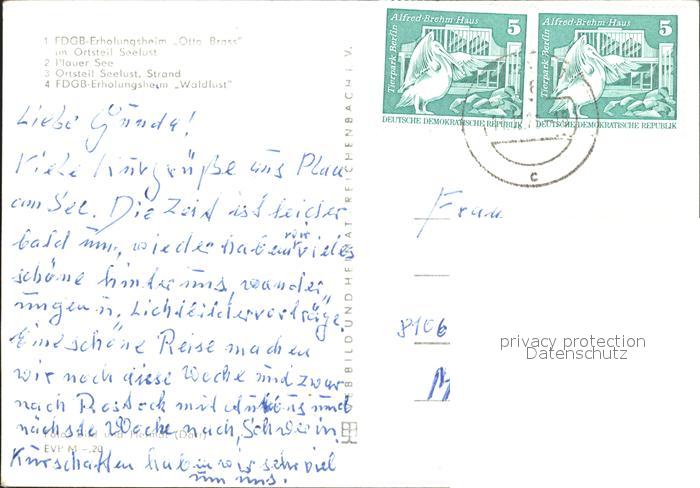 1 FDGB-Erholungsheim „Otto Brass"
im Ortsteil Seelust
2 Plauer See
3 Ortsteil Seelust, Strand
4 FDGB-Erholungsheim „Waldlust"
Liebe Gunda!
Viele Kurgrüße aus Plau
am See. Die Zeit ist leider
bald um, wieder haben wir vieles
schöne hinter uns, wander
ungen u. Lichtbildervorträge.
Eine schöne Reise machen
wir noch diese Woche und zwar
nach Rostock mit und
nächste Woche nach Schwerin.
Kurschatten haben wir sehr viel
um uns.
EVP M -.20
BILD UND HEIMAT REICHENBACH I. V.
Alfred-Brehm-Haus 5
Tierpark Berlin
DEUTSCHE DEMOKRATISCHE REPUBLIK
Alfred-Brehm-Haus 5
Tierpark Berlin
DEUTSCHE DEMOKRATISCHE REPUBLIK
c
Frau
8106
privacy protection
Datenschutz